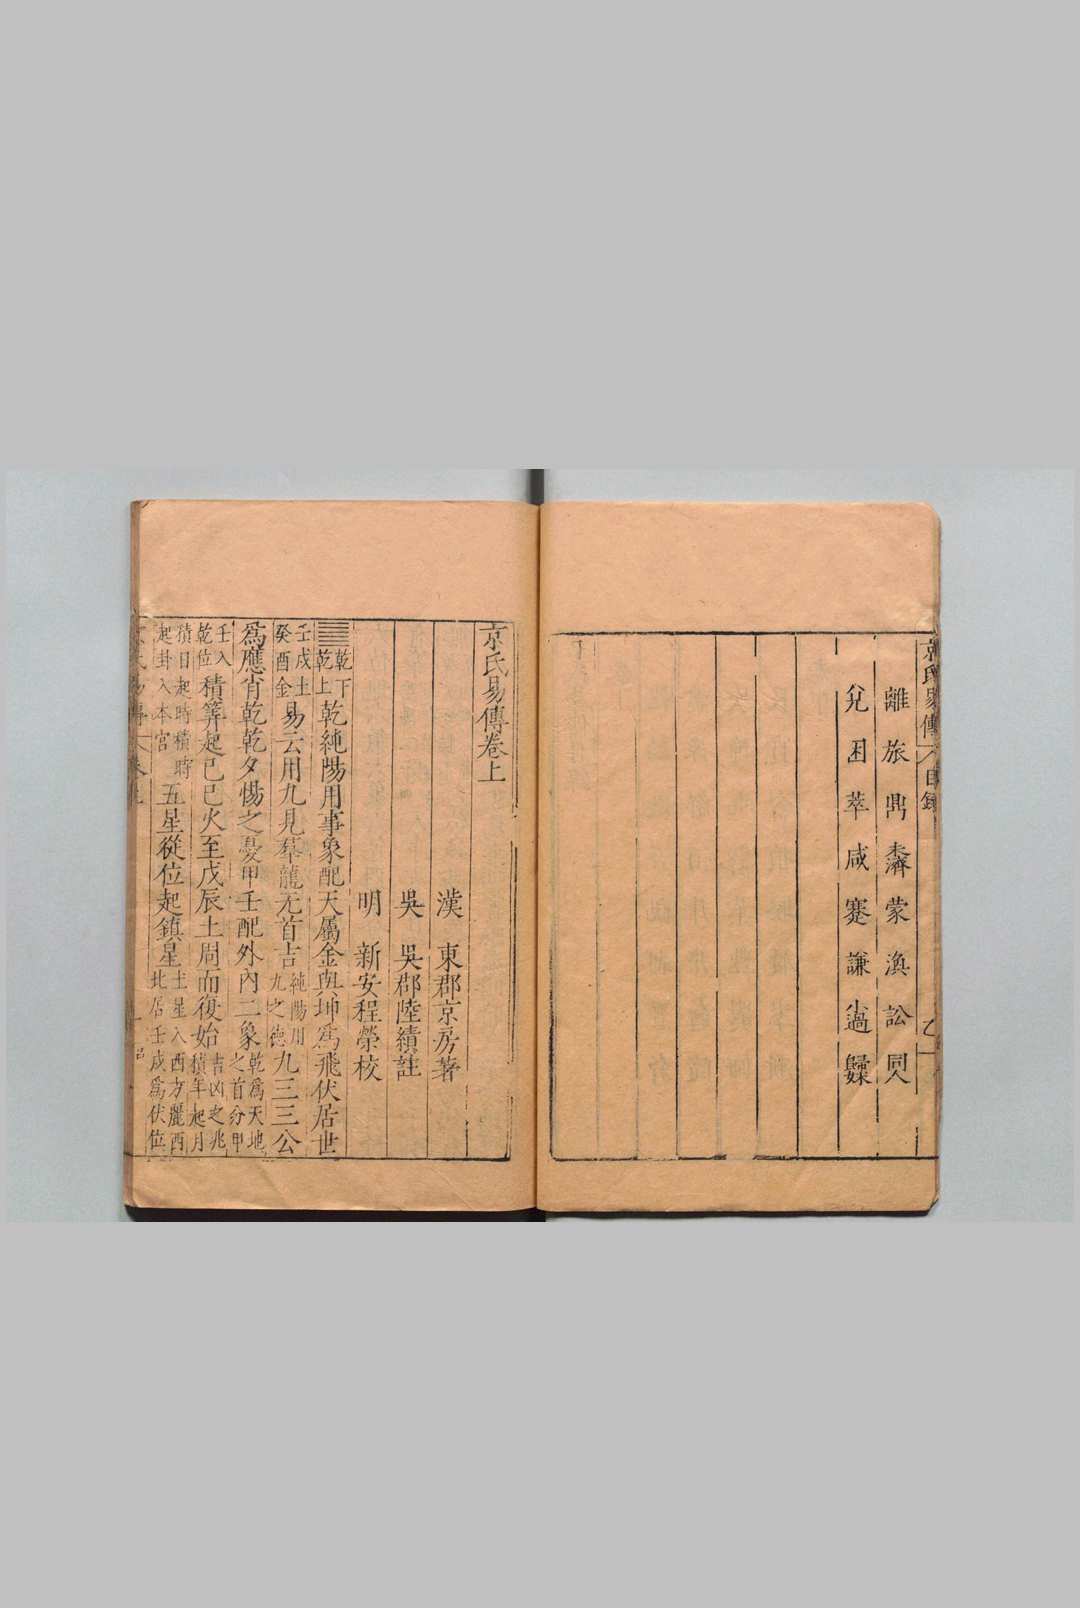 京氏易傳 目錄
離 旅 鼎 未濟 蒙 渙 訟 同人
兌 困 萃 咸 蹇 謙 小過 歸妹
京氏易傳卷上
漢 東郡京房著
吳 吳郡陸績註
明 新安程榮校
乾下乾上乾純陽用事象配天屬金與坤爲飛伏居世
壬戌土癸酉金易云用九見羣龍无首吉純陽用九之德九三三公
爲應肖乾乾夕惕之憂甲壬配外內二象乾爲天地之首分甲
壬入乾位積筭起己巳火至戊辰土周而復始吉凶之兆積年起月
積日起時積時起卦入本宮五星從位起鎮星土星入西方麗西北居壬戌爲伏位